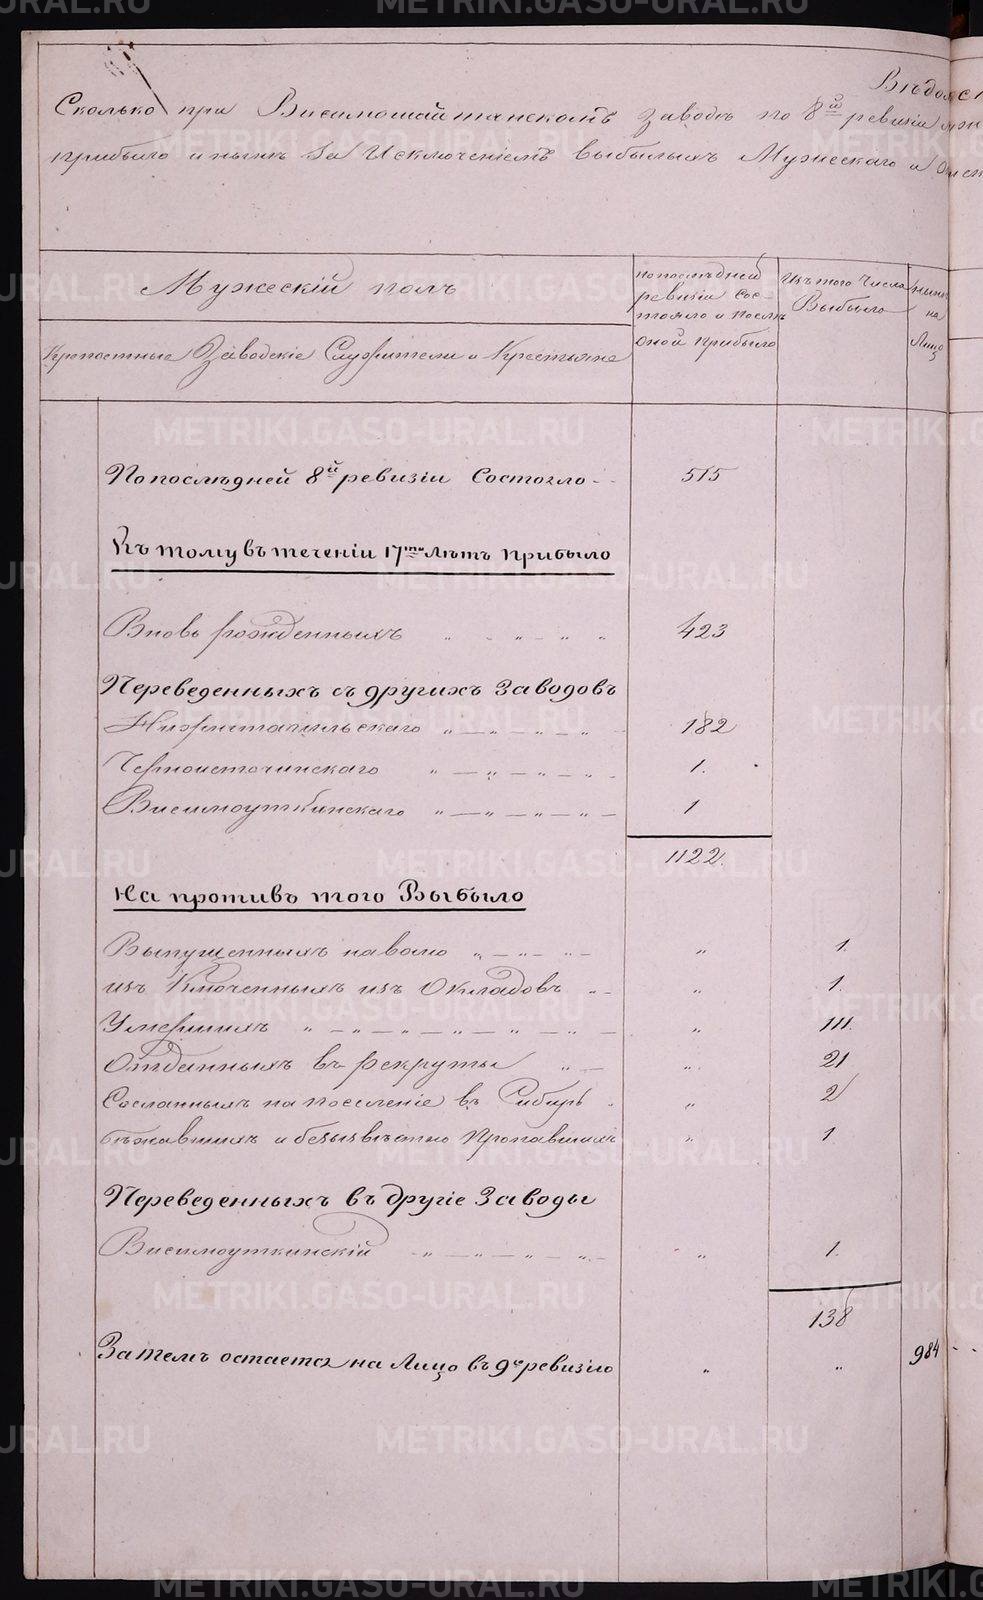 Вѣдомст
Сколько при Висимошайтанскомъ Заводѣ по 8й ревизіи
прибыло и нынѣ За Исключеніемъ выбылыхъ Мужескаго и
Мужескій полъ
Крѣпостные Заводскіе Служители и Крестьяне
по послѣдней
ревизіи сос-
тояло и послѣ
оной прибыло
Изъ того Числа
Выбыло
ныне
на
Лицо
По послѣдней 8й ревизіи Состояло - - 515
Къ тому въ теченіи 17ти лѣтъ прибыло
Вновь рожденныхъ „ - „ - „ „ 423
Переведенныхъ съ другихъ Заводовъ
Нижнетагильскаго „ — „ — „ — „ - 182
Черноисточинскаго „ — „ — „ - „ - 1.
Висимоуткинскаго „ — „ — „ — „ — 1
1122.
На противъ того Выбыло
Выпущенныхъ на волю „ — „ — „ - „ 1.
изъ Ключенныхъ изъ Окладовъ „ - „ 1.
Умершихъ „ — „ — „ — „ — „ — „ - „ 111.
Отданныхъ въ рекруты „ — „ 21
Сосланныхъ на поселеніе въ Сибирь . „ 2
бѣжавшихъ и безызвѣстно пропавшихъ „ 1
Переведенныхъ въ другіе Заводы
Висимоуткинскій „ — „ — „ — „ - „ 1.
138
За темъ остается на Лицо въ 9ю ревизію „ „ 984 - -
METRIKI.GASO-URAL.RU